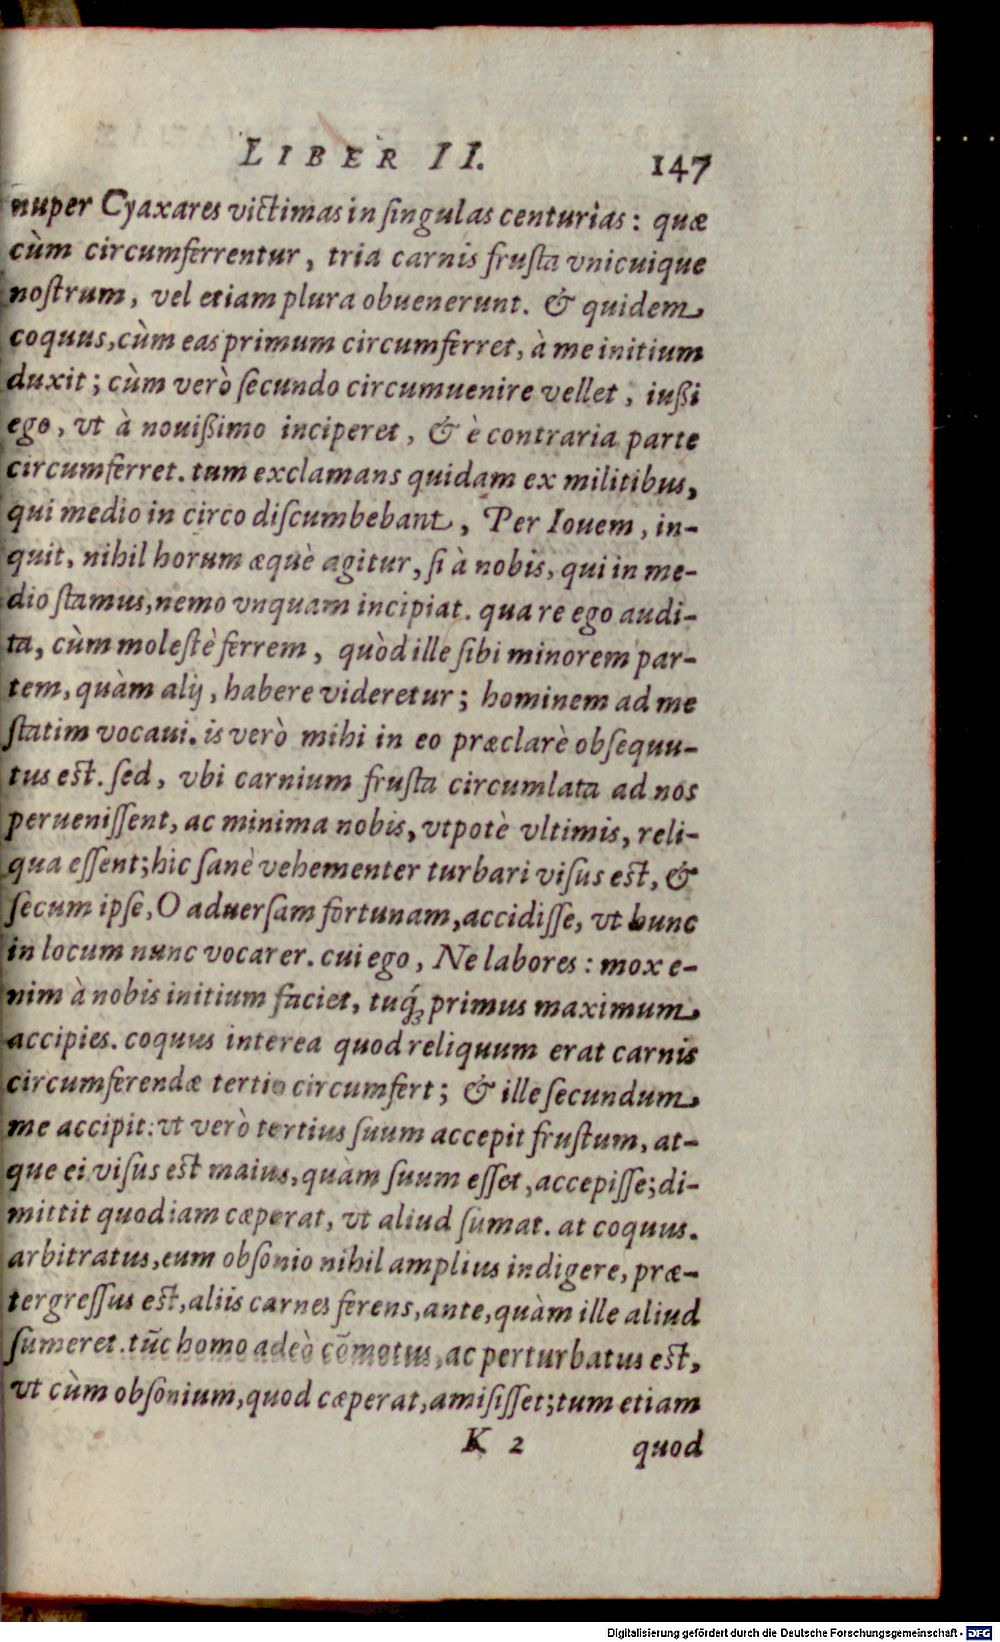 LIBER II. 147
nuper Cyaxares victimas in ſingulas centurias: quæ
cùm circumferrentur, tria carnis fruſta vnicuique
noſtrum, vel etiam plura obuenerunt. & quidem
coquus, cùm eas primum circumferret, à me initium
duxit; cùm verò ſecundo circumuenire vellet, iußi
ego, vt à nouißimo inciperet, & è contraria parte
circumferret. tum exclamans quidam ex militibus,
qui medio in circo diſcumbebant, Per Iouem, in-
quit, nihil horum æquè agitur, ſi à nobis, qui in me-
dio ſtamus, nemo vnquam incipiat. qua re ego audi-
ta, cùm moleſtè ferrem, quòd ille ſibi minorem par-
tem, quàm alij, habere videretur; hominem ad me
ſtatim vocaui. is verò mihi in eo præclarè obſequu-
tus eſt. ſed, vbi carnium fruſta circumlata ad nos
perueniſſent, ac minima nobis, vtpotè vltimis, reli-
qua eſſent; hic ſanè vehementer turbari viſus eſt, &
ſecum ipſe, O aduerſam fortunam, accidiſſe, vt hunc
in locum nunc vocarer. cui ego, Ne labores: mox e-
nim à nobis initium faciet, tuq́ꝫ primus maximum
accipies. coquus interea quod reliquum erat carnis
circumferendæ tertio circumfert; & ille ſecundum
me accipit: vt verò tertius ſuum accepit fruſtum, at-
que ei viſus eſt maius, quàm ſuum eſſet, accepiſſe; di-
mittit quod iam cæperat, vt aliud ſumat. at coquus.
arbitratus, eum obſonio nihil amplius indigere, præ-
tergreſſus eſt, aliis carnes ferens, ante, quàm ille aliud
ſumeret. tūc homo adeò cōmotus, ac perturbatus eſt,
vt cùm obſonium, quod cæperat, amiſiſſet; tum etiam
K 2 quod
Digitalisierung gefördert durch die Deutsche Forschungsgemeinschaft - DFG